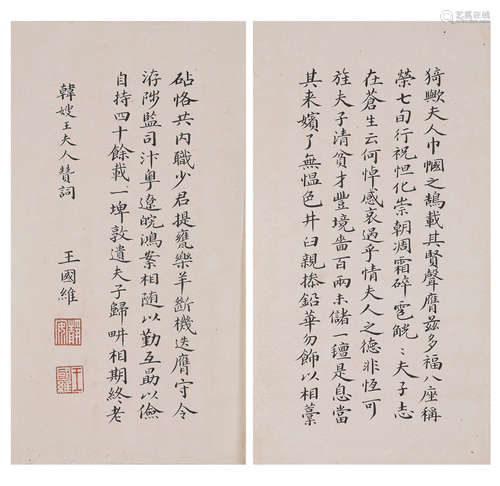 猗歟夫人巾幗之鵠載其賢聲膺茲多福八座稱
榮七旬行祝怛化崇朝凋霜碎雹觥：夫子志
在蒼生云何悼感哀過乎情夫人之德非恆可
旌夫子清貧才豐境嗇百兩未儲一壇是息當
其来嬪了無愠色井臼親操鉛華勿飾以相藁
砧恪共內職少君提甕樂羊斷機迭膺守令
洊陟監司汴粵遼皖鴻案相随以勤互勗以儉
自持四十餘載一埤敦遺夫子歸畊相期終老
韓嫂王夫人贊詞
王國維